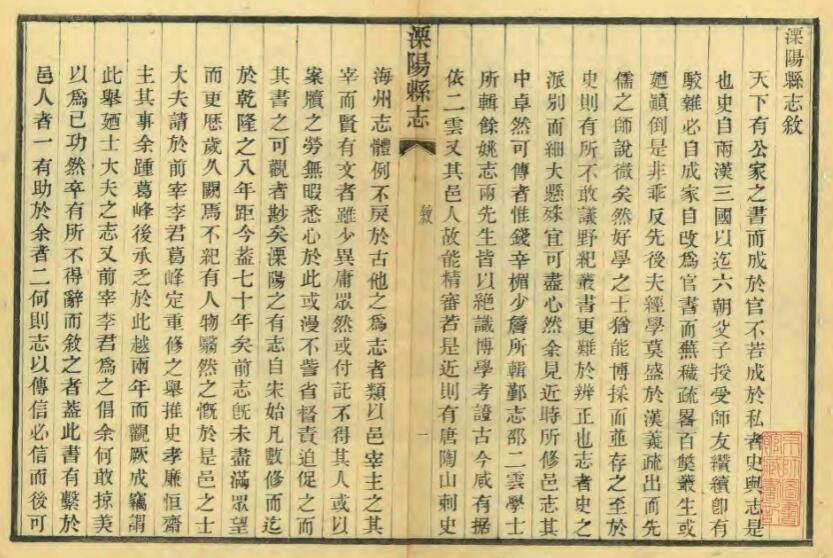 溧陽縣志敘
天下有公家之書而成於官不若成於私者史與志是
也史自兩漢三國以迄六朝父子授受師友纘續卽有
駮雜必自成家自改爲官書而蕪穢疏畧百獘叢生或
廼顚倒是非乖反先後夫經學莫盛於漢義疏出而先
儒之師說微矣然好學之士猶能博採而並存之至於
史則有所不敢議野紀叢書更難於辨正也志者史之
派別而細大懸殊宜可盡心然余見近時所修邑志其
中卓然可傳者惟錢辛楣少詹所輯鄞志邵二雲學士
所輯餘姚志兩先生皆以絶識博學考證古今咸有據
依二雲又其邑人故能精審若是近則有唐陶山刺史
溧陽縣志
敘
一
海州志體例不戾於古他之爲志者類以邑宰主之其
宰而賢有文者雖少異庸眾然或付託不得其人或以
案牘之勞無暇悉心於此或漫不訾省督責迫促之而
其書之可觀者尠矣溧陽之有志自宋始凡數修而迄
於乾隆之八年距今葢七十年矣前志旣未盡滿眾望
而更歴歲久闕焉不紀有人物翳然之慨於是邑之士
大夫請於前宰李君葛峰定重修之舉推史孝廉恒齋
主其事余踵葛峰後承乏於此越兩年而觀厥成竊謂
此舉廼士大夫之志又前宰李君爲之倡余何敢掠美
以爲已功然卒有所不得辭而敘之者葢此書有繫於
邑人者一有助於余者二何則志以傳信必信而後可